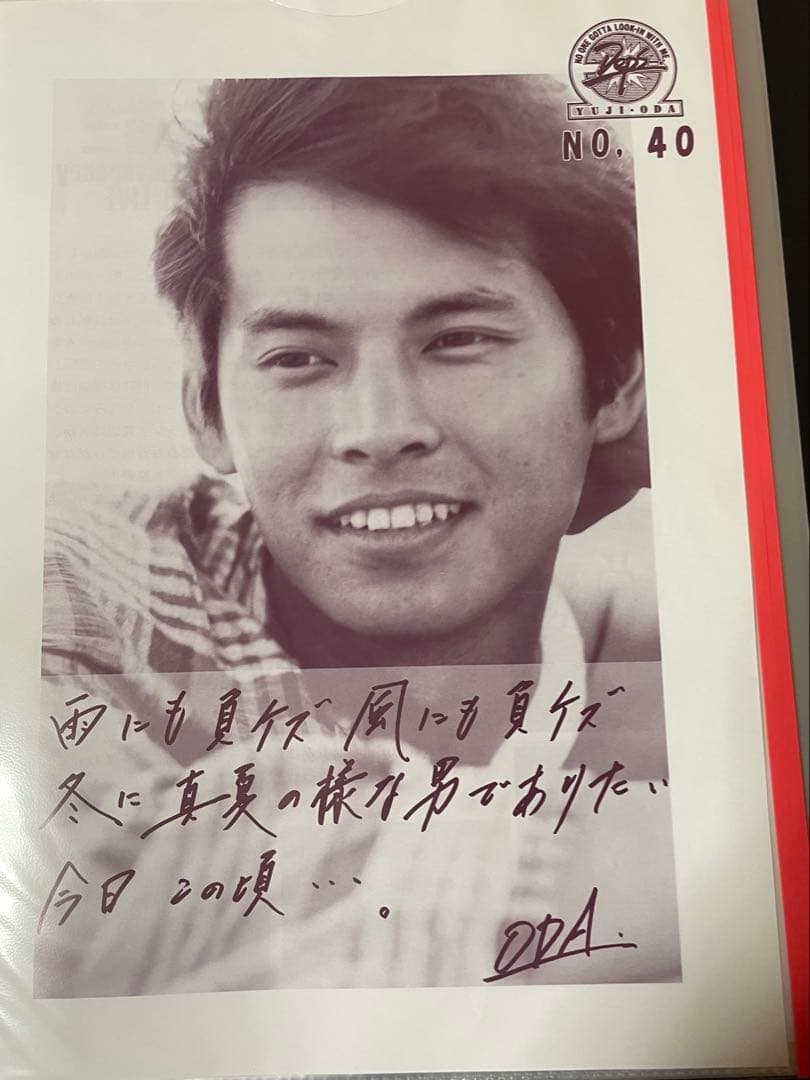 NO ONE GOTTA LOOK-IN WITH ME.
YUJI・ODA
NO, 40
雨にも負ケズ 風にも負ケズ
冬に真夏の様な男でありたい
今日この頃…。
ODA.